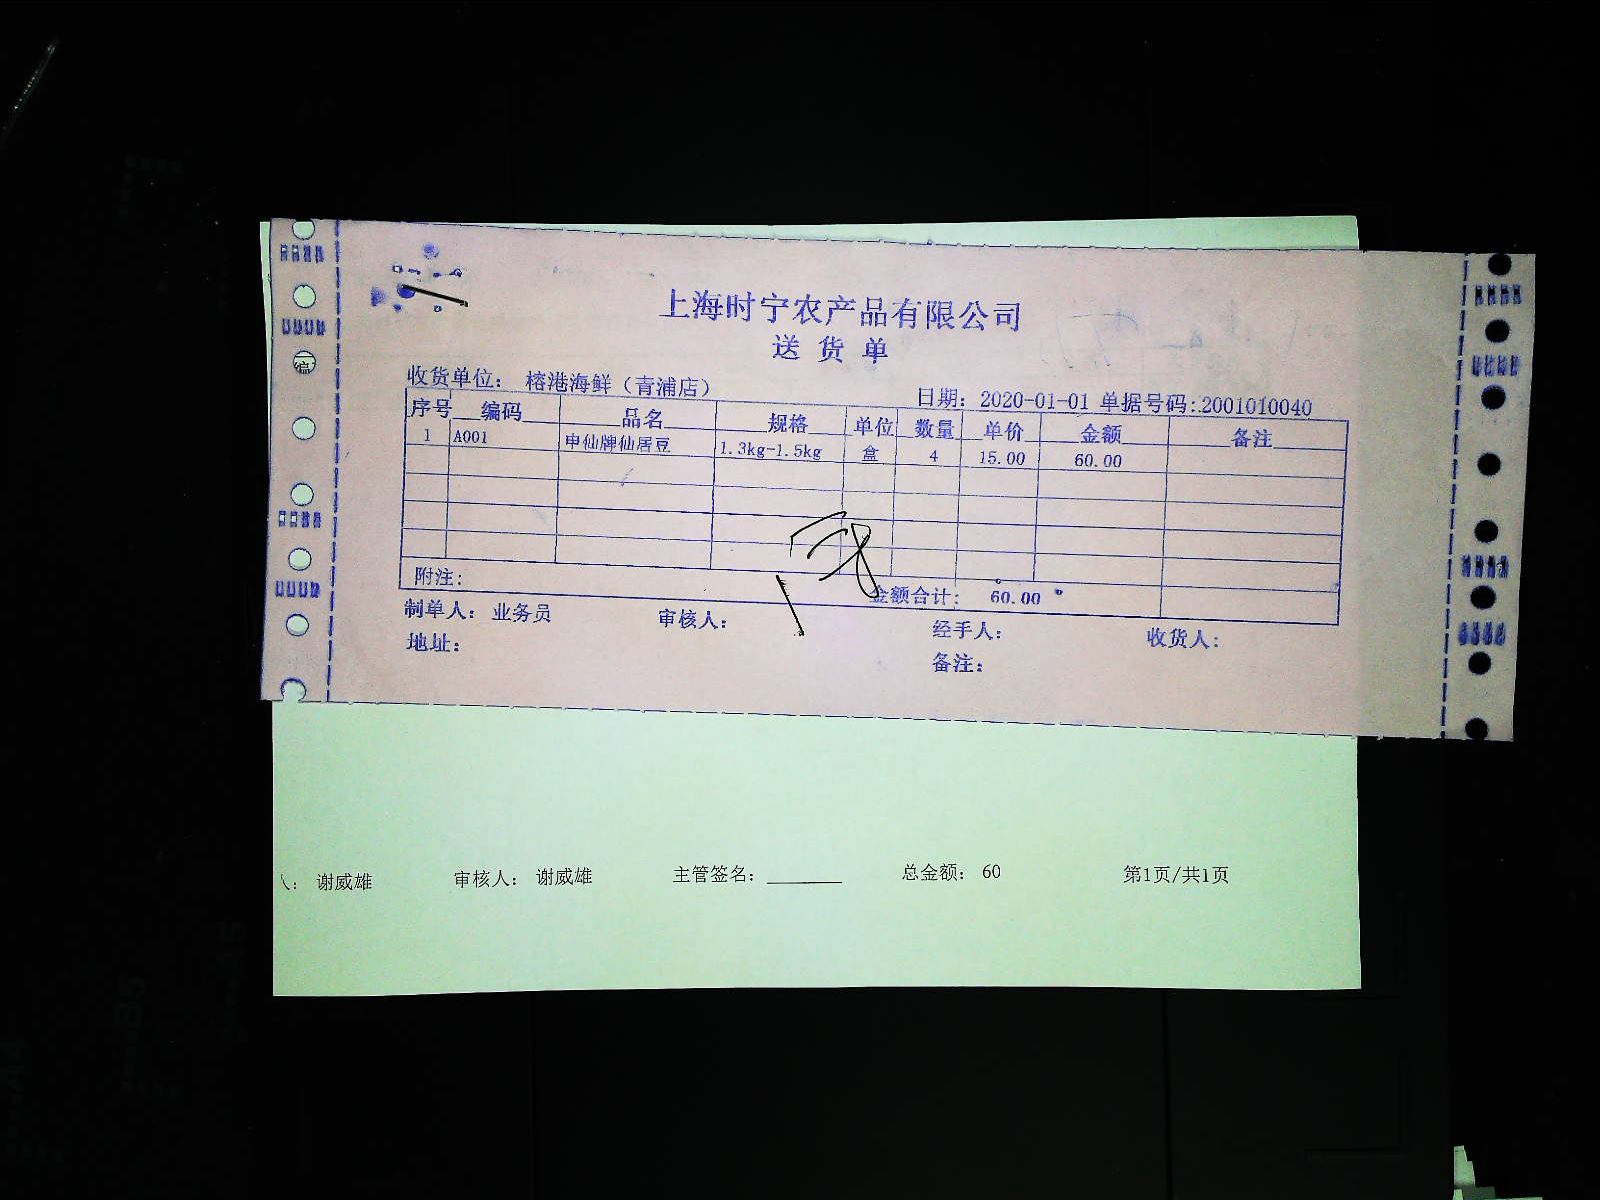 上海时宁农产品有限公司
送货单
收货单位： 榕港海鲜（青浦店） 日期： 2020-01-01 单据号码:2001010040
序号 编码 品名 规格 单位 数量 单价 金额 备注
1 A001 申仙牌仙居豆 1.3kg-1.5kg 盒 4 15.00 60.00
附注: 金额合计: 60.00
制单人: 业务员 审核人: 经手人: 收货人:
地址: 备注:
人: 谢威雄 审核人: 谢威雄 主管签名: ________ 总金额: 60 第1页/共1页